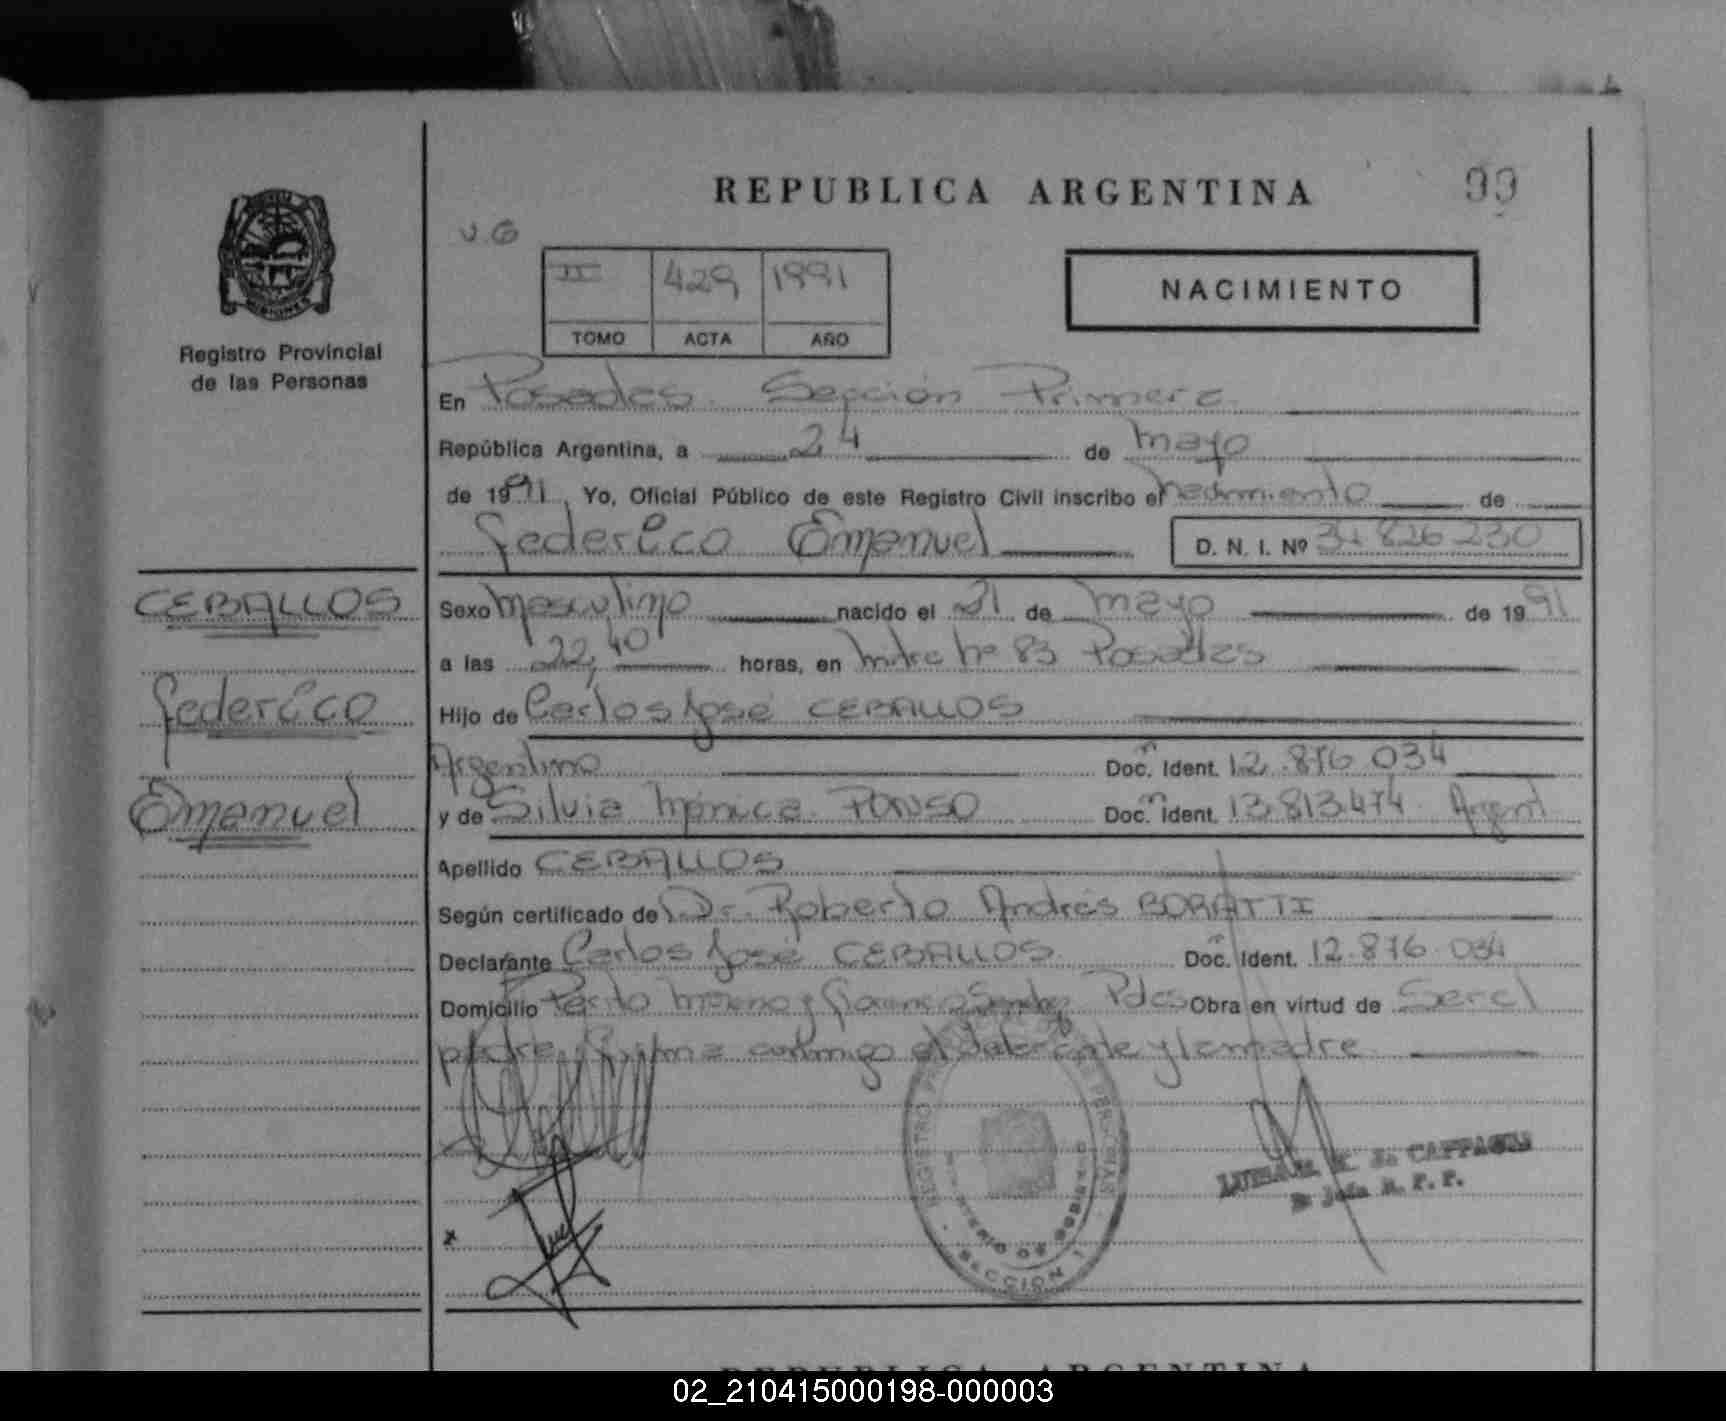 REPUBLICA ARGENTINA
99
v.G
II 429 1991
TOMO ACTA AÑO
NACIMIENTO
MISIONES
Registro Provincial
de las Personas
En Posadas. Sección Primera
República Argentina, a 24 de mayo
de 1991, Yo, Oficial Público de este Registro Civil inscribo el nacimiento de
Federico Emanuel D. N. I. Nº 34.826.230
CEBALLOS
Federico
Emanuel
Sexo masculino nacido el 21 de mayo de 1991
a las 22,40 horas, en Mitre nº 83 Posadas
Hijo de Carlos José CEBALLOS
Argentino Doc. Ident. 12.876.034
y de Silvia Mónica PONSO Doc. Ident. 13.813.474 Argent
Apellido CEBALLOS
Según certificado de Dr. Roberto Andrés BORATTI
Declarante Carlos José CEBALLOS Doc. Ident. 12.876.034
Domicilio Perito Moreno y Florencio Sanchez Pdas Obra en virtud de Ser el
padre. Firma conmigo el declarante y la madre
REGISTRO DE LAS PERSONAS
MINISTERIO DE GOBIERNO
SECCION 1
de
REPUBLICA ARGENTINA
02_210415000198-000003